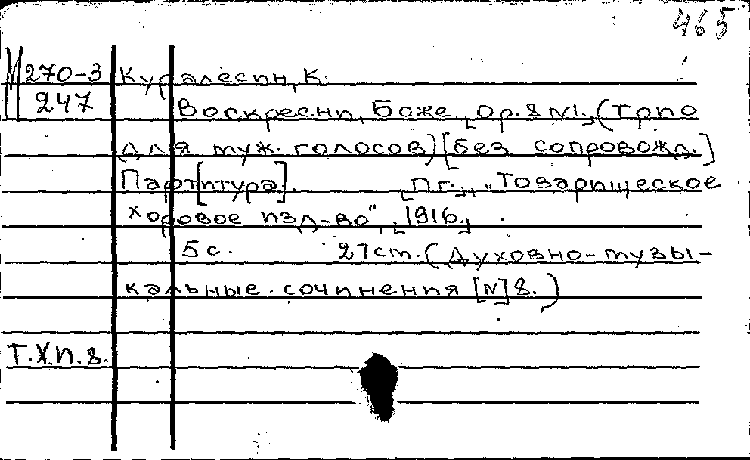 465
М 270-3 Куралесин, К.
247 Воскресни, Боже, ор. 8 №1, (Трио
для муж. голосов) [без сопровожд.]
Парт[итура]. [П.г.], "Товарищеское
хоровое изд-во", [1916].
5 с. 27 ст. (Духовно-музы-
кальные сочинения [№] 8.)
Т.Х п. 8.